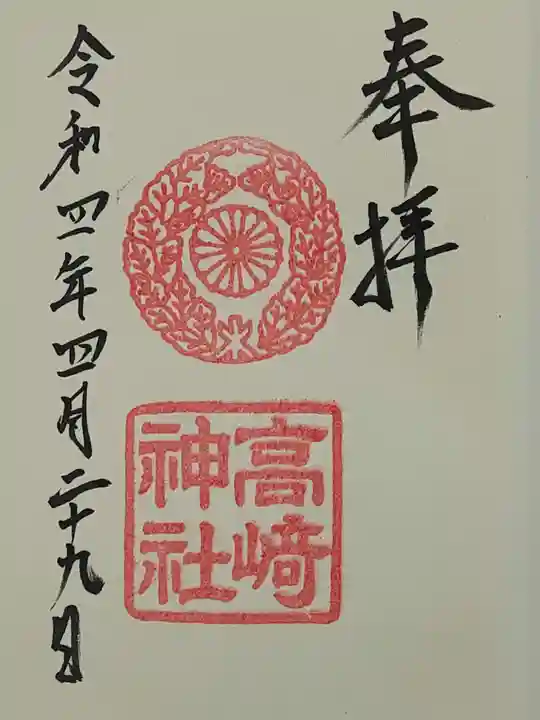 奉拝
高﨑
神社
令和四年四月二十九日